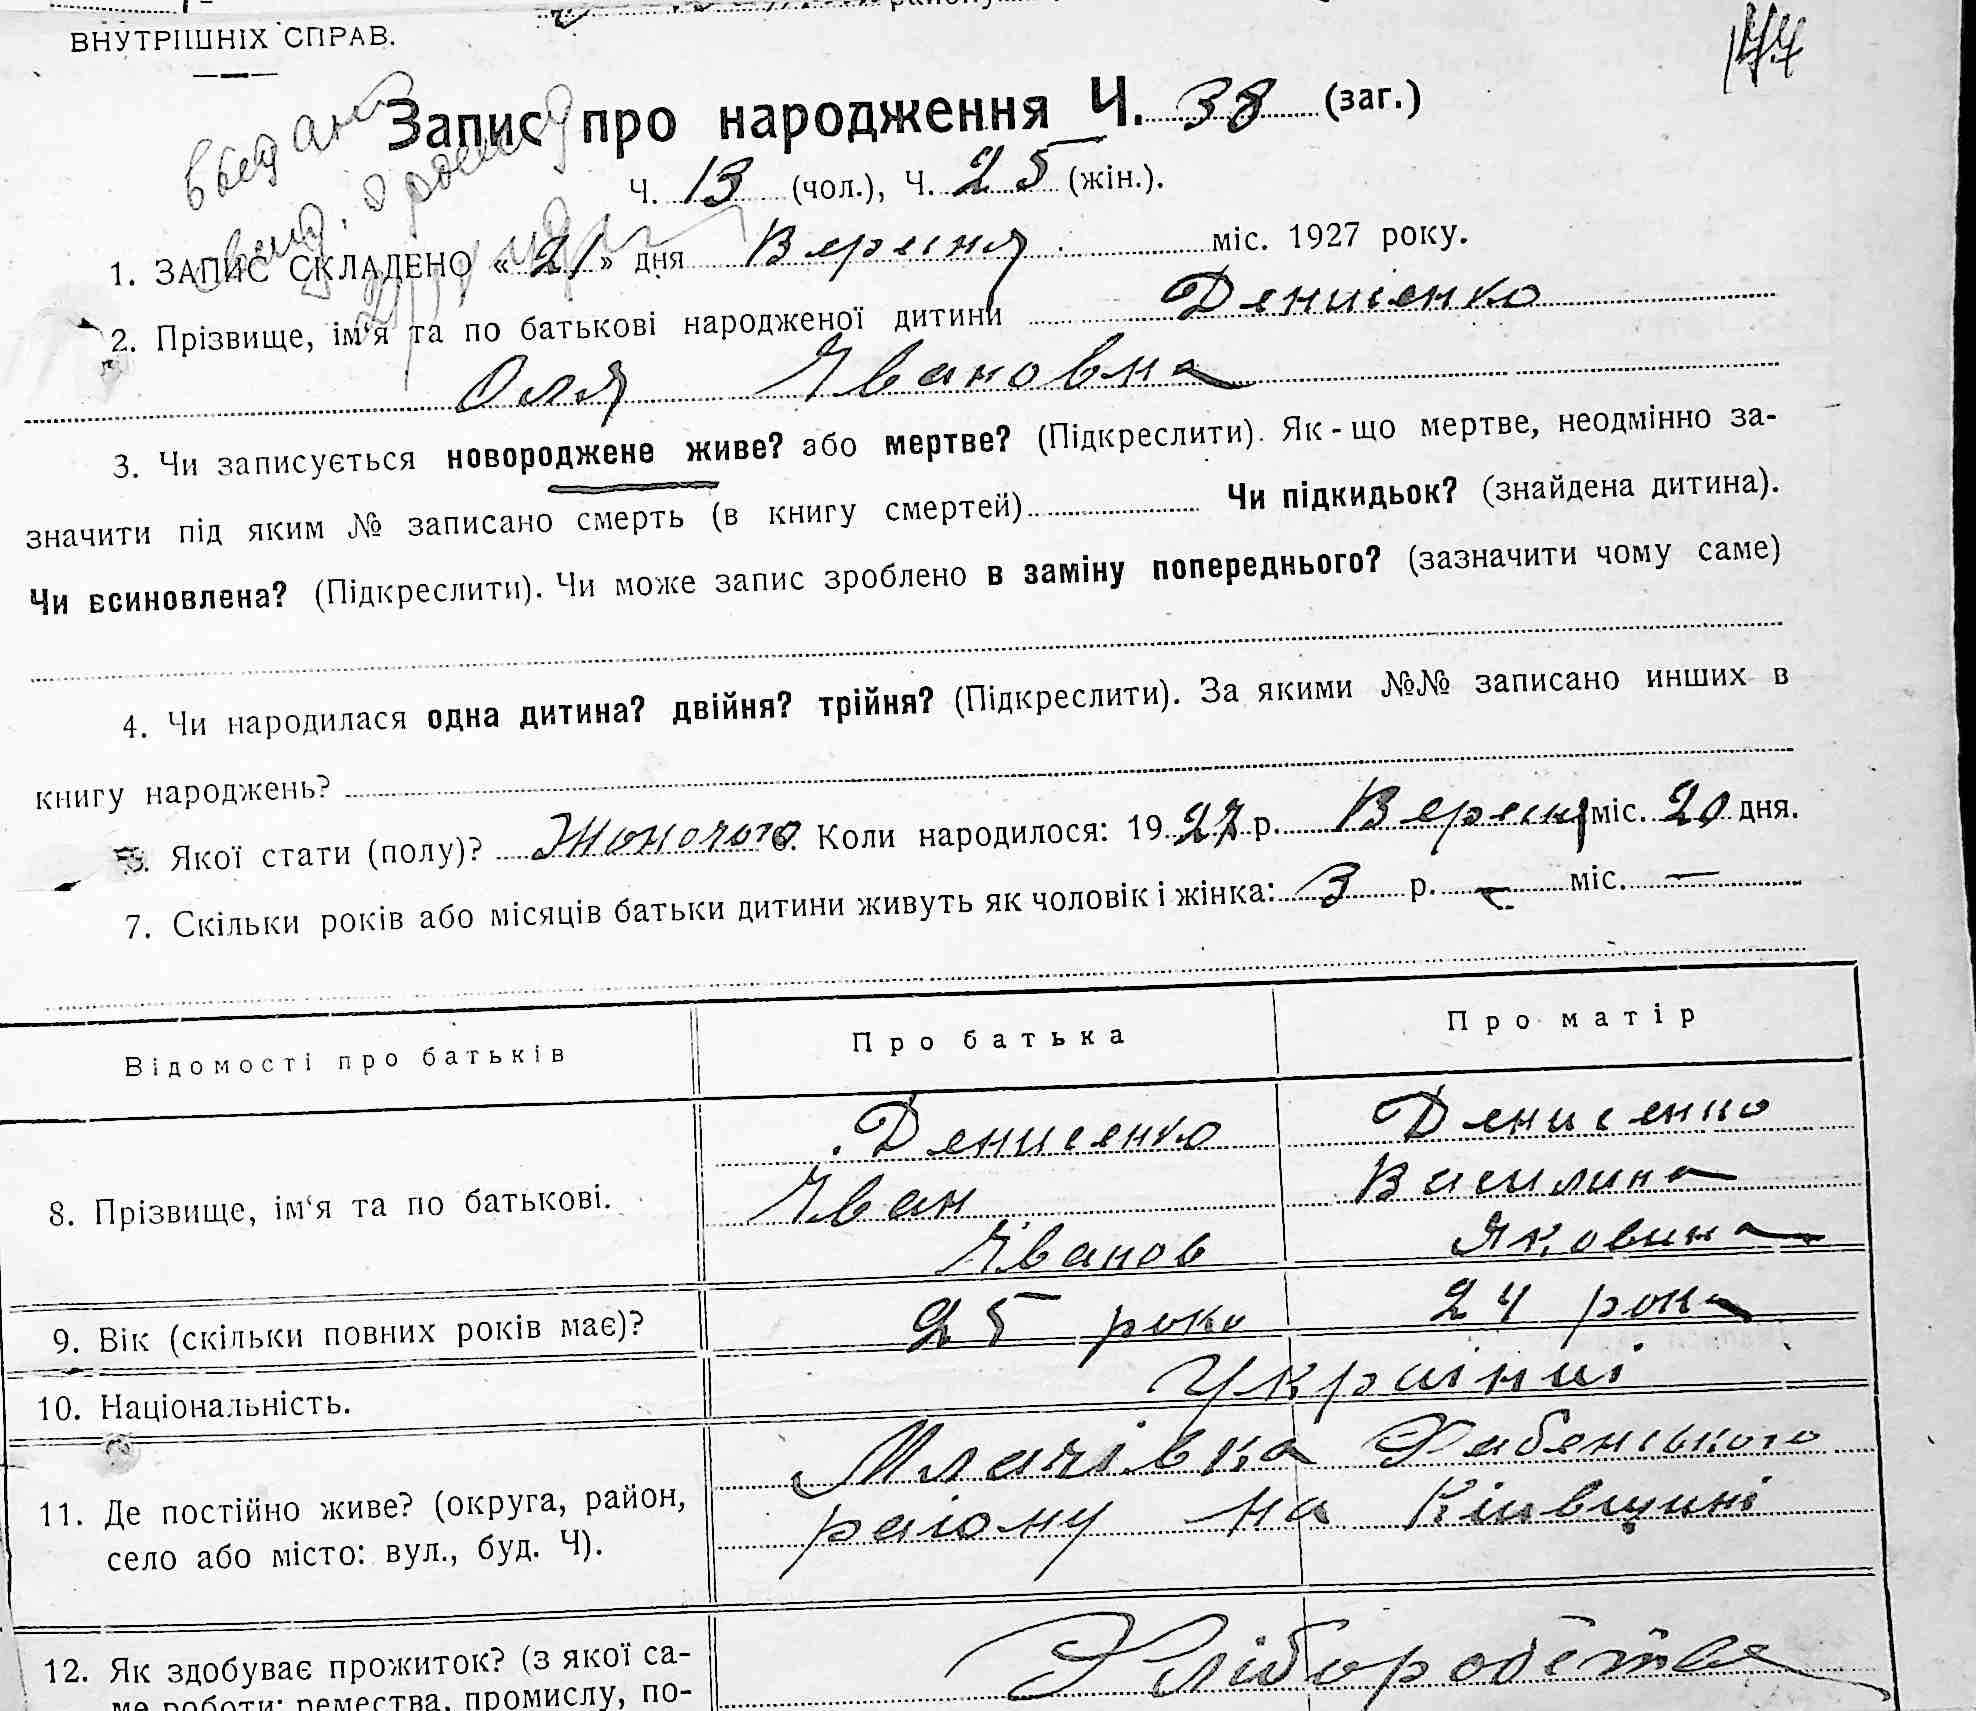 ВНУТРІШНІХ СПРАВ.
144
Запис про народження Ч. 38 (заг.)
Ч. 13 (чол.), Ч. 25 (жін.).
выдано
свид. о рожд
1. ЗАПИС СКЛАДЕНО « 21 » дня Вересня міс. 1927 року.
2. Прізвище, ім'я та по батькові народженої дитини Денисенко
Оля Ивановна
3. Чи записується новороджене живе? або мертве? (Підкреслити). Як-що мертве, неодмінно за-
значити під яким № записано смерть (в книгу смертей) Чи підкидьок? (знайдена дитина).
Чи всиновлена? (Підкреслити). Чи може запис зроблено в заміну попереднього? (зазначити чому саме)
4. Чи народилася одна дитина? двійня? трійня? (Підкреслити). За якими №№ записано инших в
книгу народжень?
5. Якої стати (полу)? Жоночого 6. Коли народилося: 19 27 р. Вересня міс. 20 дня.
7. Скільки років або місяців батьки дитини живуть як чоловік і жінка: 3 р. — міс. —
Відомості про батьків Про батька Про матір
8. Прізвище, ім'я та по батькові.
Денисенко Денисенко
Иван Василина
Иванов Яковина
9. Вік (скільки повних років має)? 25 роки 24 рока
10. Національність. Українці
11. Де постійно живе? (округа, район,
село або місто: вул., буд. Ч).
Млачівка Хабенського
району на Київщині
12. Як здобуває прожиток? (з якої са-
ме роботи: ремества, промислу, по-
Хліборобства